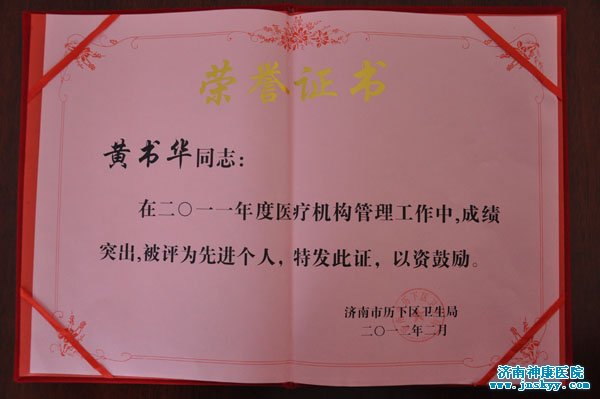 荣誉证书
黄书华同志：
在二〇一一年度医疗机构管理工作中,成绩
突出,被评为先进个人，特发此证，以资鼓励。
济南市历下区卫生局
二〇一二年二月
济南神康医院
www.jnskyy.com